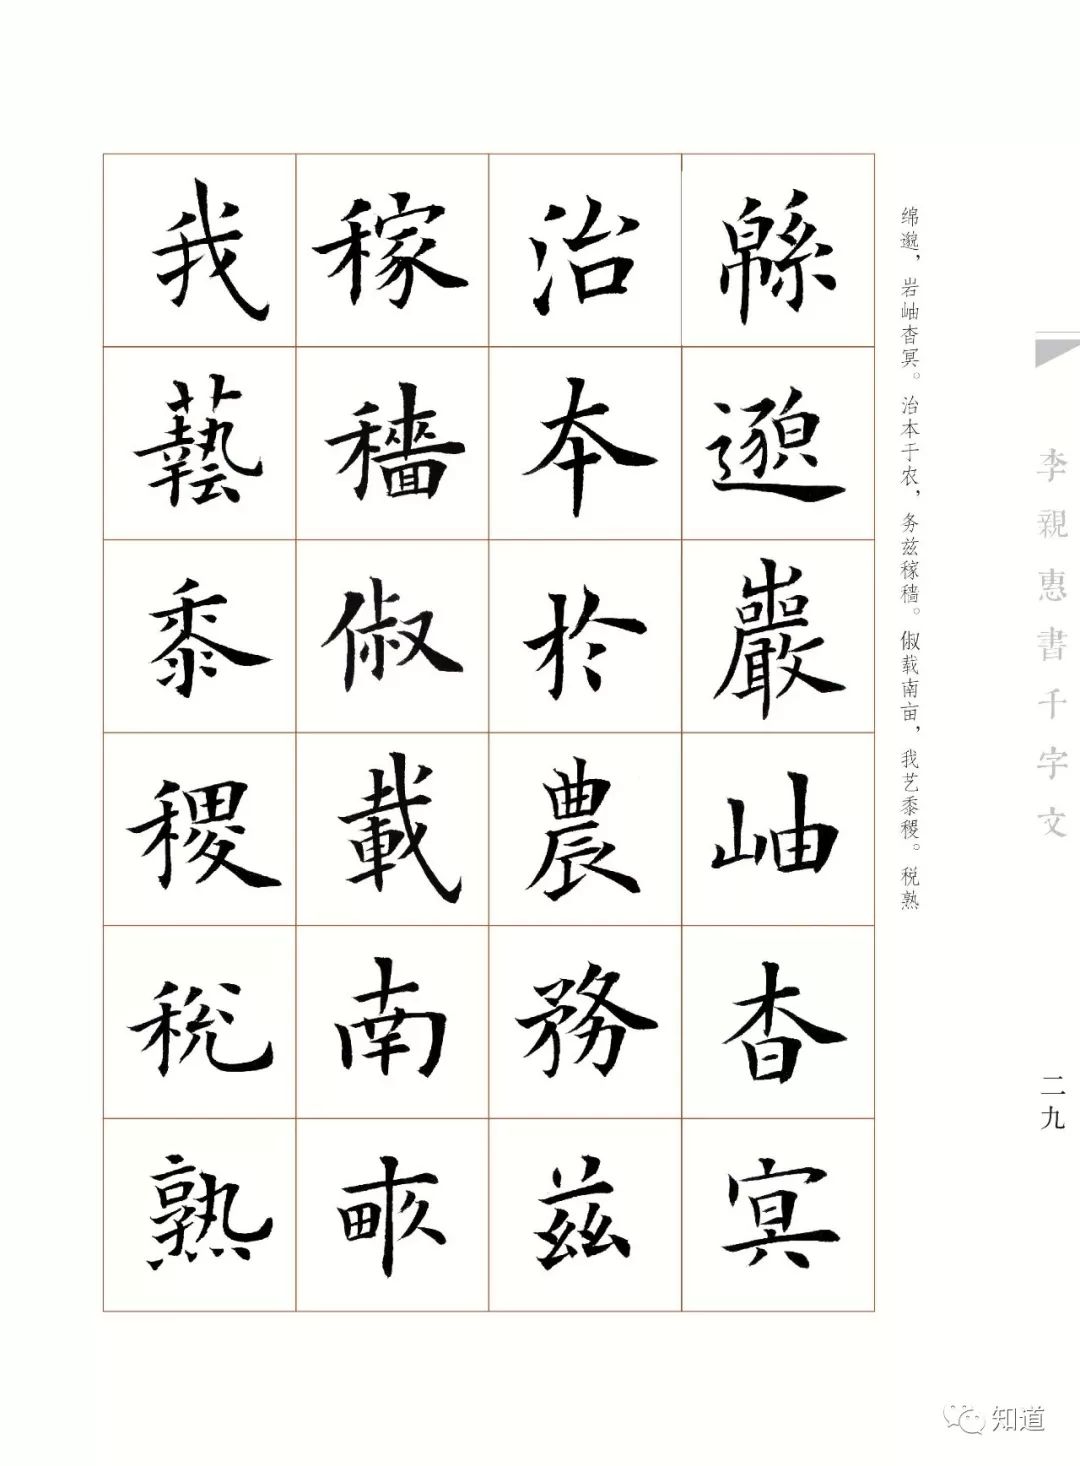 緜邈巖岫杳冥
治本於農務茲
稼穡俶載南畝
我藝黍稷稅熟
绵邈，岩岫杳冥。治本于农，务兹稼穑。俶载南亩，我艺黍稷。税熟
李親惠書千字文
二九
知道